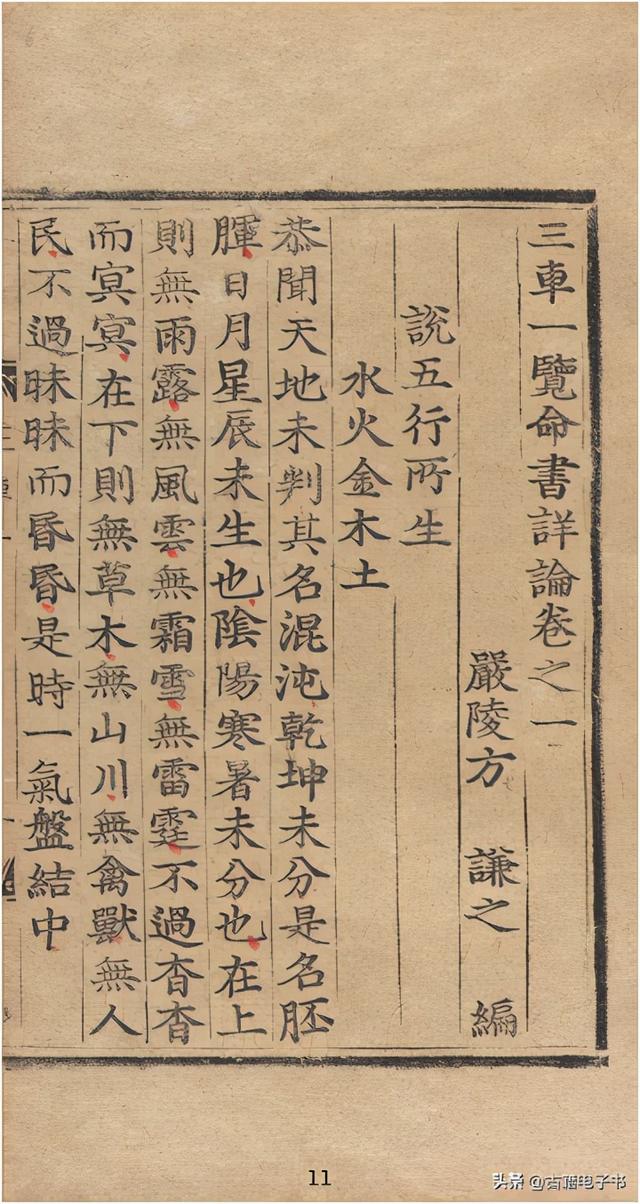 三車一覽命書詳論卷之一
嚴陵方 謙之 編
說五行所生
水火金木土
恭聞天地未判其名混沌乾坤未分是名胚
腪日月星辰未生也陰陽寒暑未分也在上
則無雨露無風雲無霜雪無雷霆不過杳杳
而冥冥在下則無草木無山川無禽獸無人
民不過昧昧而昏昏是時一氣盤結中
11
头条 @古籍电子书